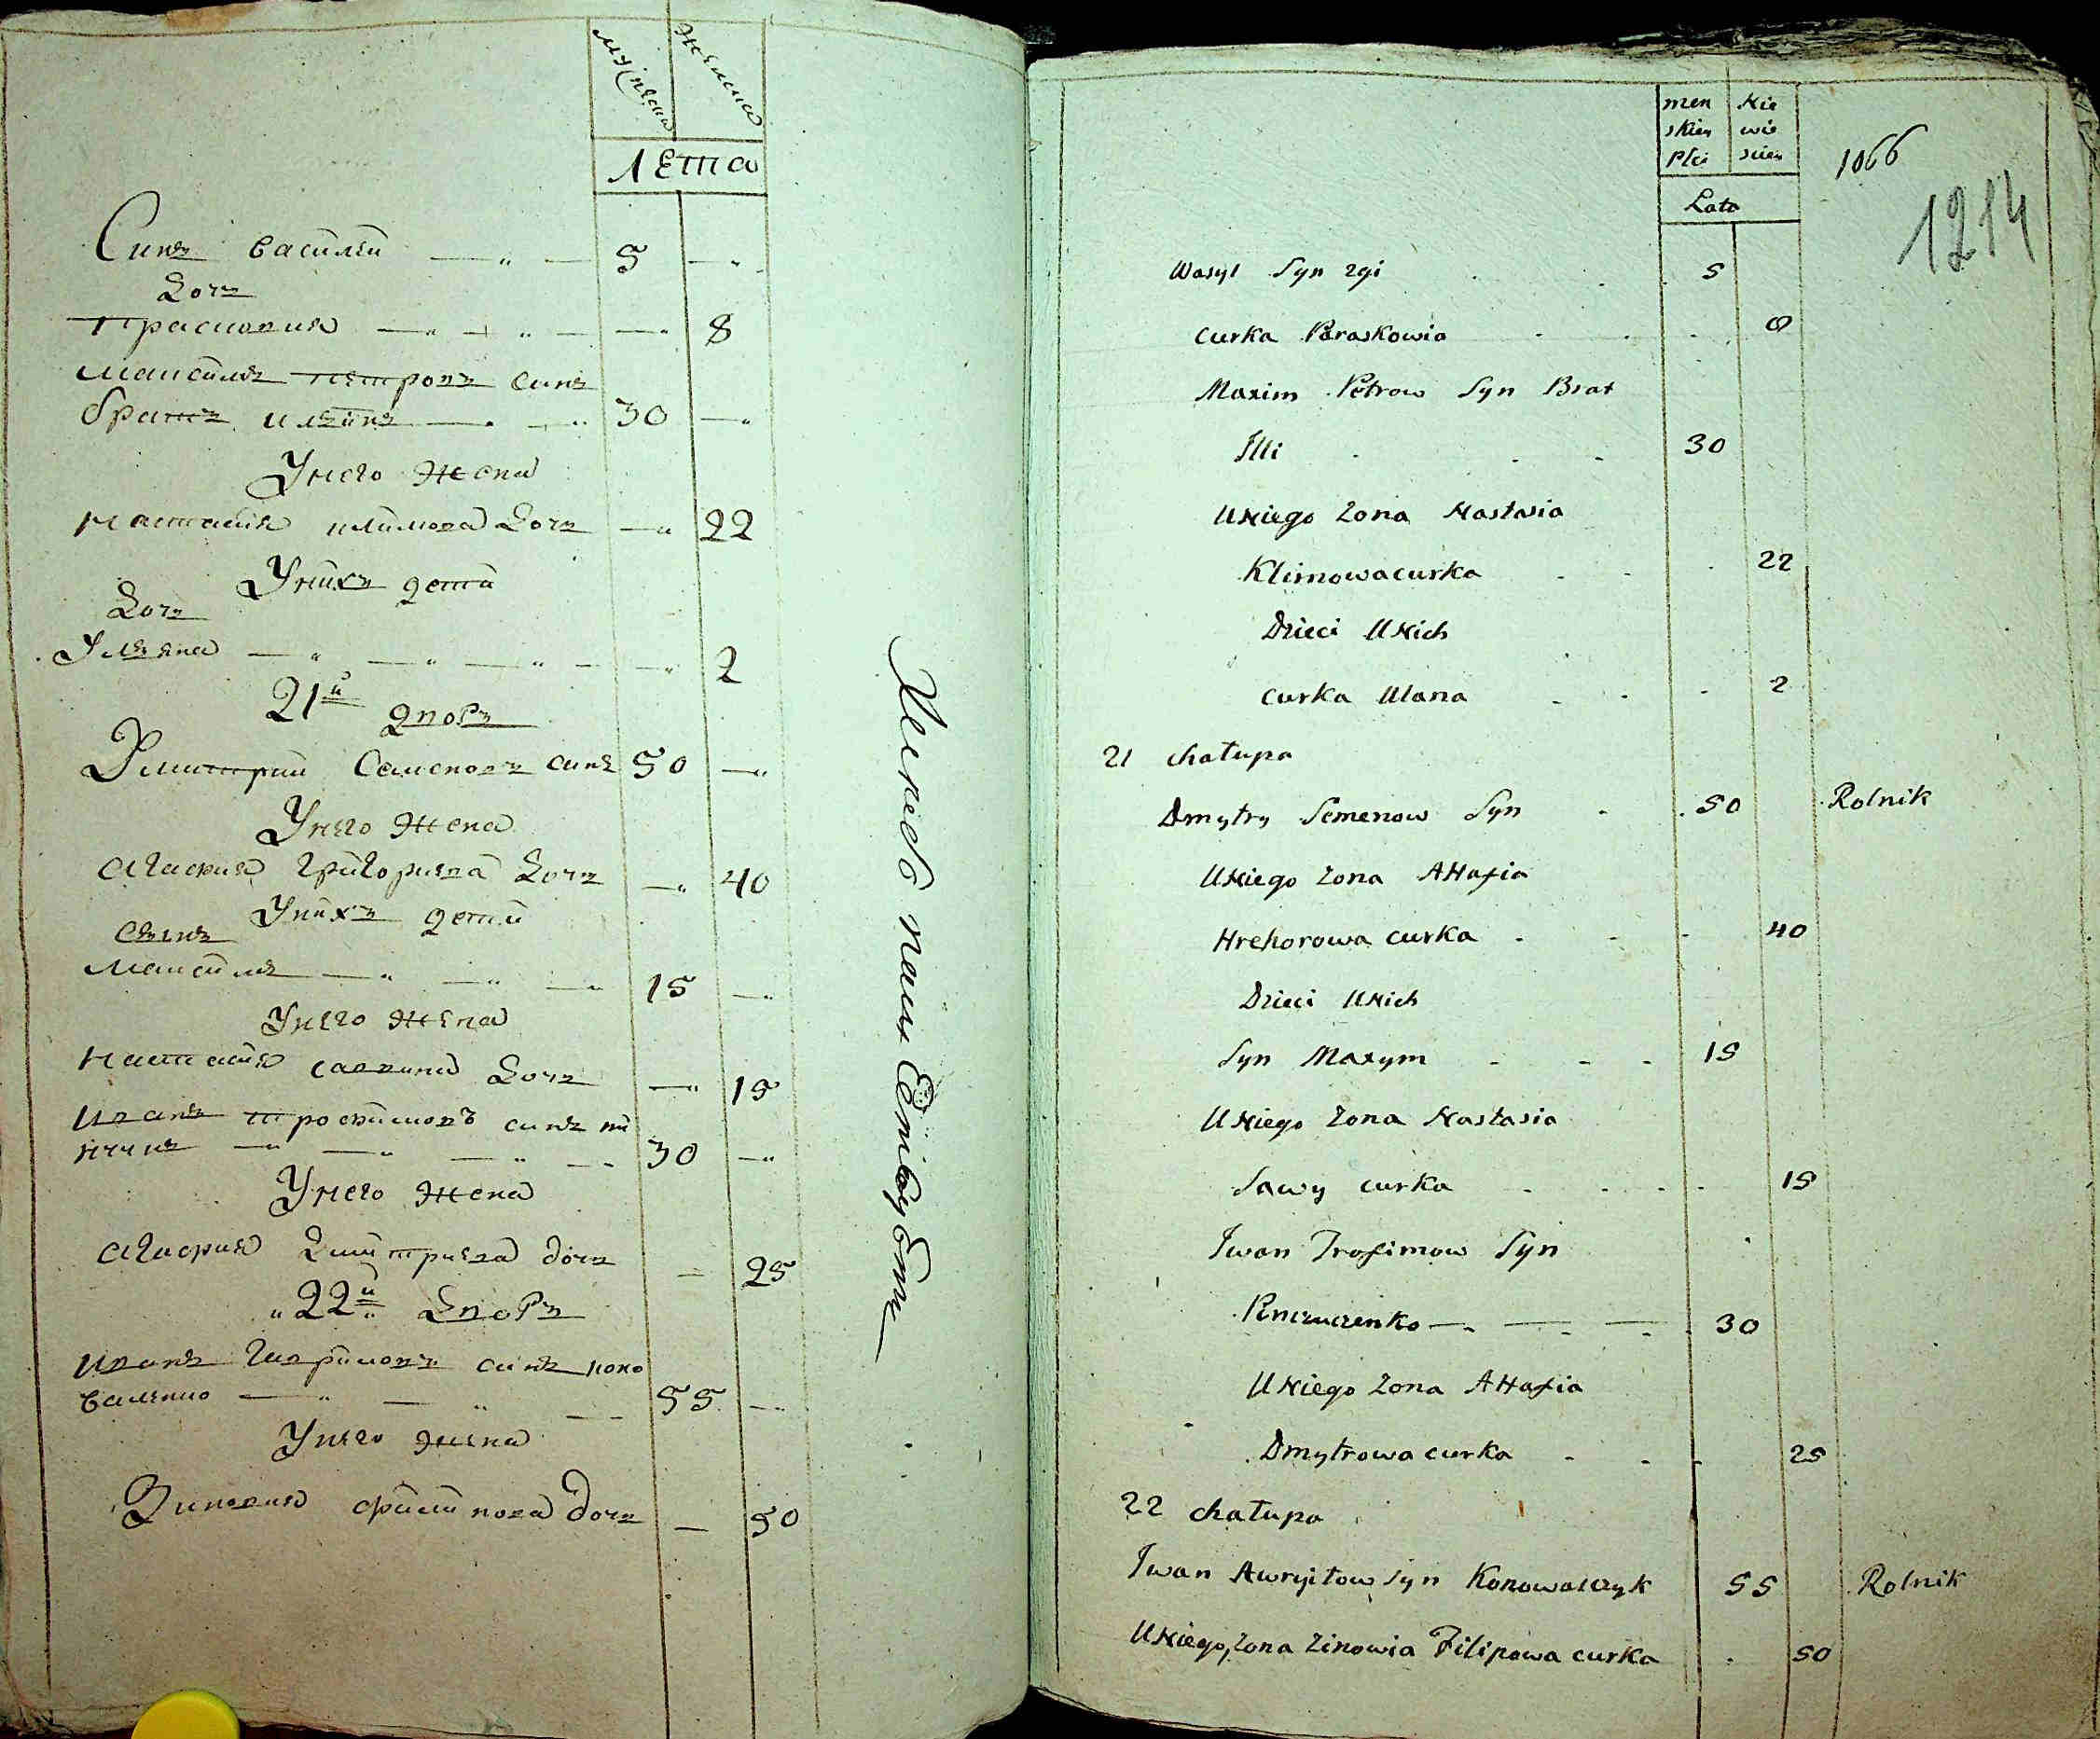 мужеска женска
лета
Синъ василей — „ — 5 — „
Дочъ
Прасковия — „ — „ — — „ 8
Максимъ петровъ синъ
братъ илеинъ — „ — „ 30 — „
Унего жена
настасия климова Дочъ — „ 22
Унихъ дети
Дочъ
Улияна — „ — „ — „ — — „ 2
21й дворъ
Дмитрий Семеновъ синъ 50 — „
Унего жена
агафия григориева Дочъ — „ 40
Унихъ дети
Сынъ
Максимъ — „ — „ — „ 15 — „
Унего жена
настасия саввина Дочъ — „ 15
иванъ трофимовъ синъ пи
— „ — „ — „ — 30 — „
Унего жена
агафия Дмитриева дочъ — 25
„ 22й „ Дворъ
иванъ гавриловъ синъ коно
валенко — „ — „ — 55 — „
Унего жена
Зиновия филипова дочъ — 50
men skiey Płci Nie wie sciey
Lata
1066
1214
Wasyl Syn 2gi 5
curka Paraskowia 8
Maxim Petrow Syn Brat
Illi 30
UNiego Zona Nastasia
Klimowa curka 22
Dzieci UNich
curka Ulana 2
21 chałupa
Dmytry Semenow Syn 50 Rolnik
UNiego Zona AHafia
Hrehorowa curka 40
Dzieci UNich
Syn Maxym 15
UNiego Zona Nastasia
Sawy curka 15
Iwan Trofimow Syn
— „ — „ — „ 30
UNiego Zona AHafia
Dmytrowa curka 25
22 chałupa
Iwan syn Konowalczyk 55 Rolnik
UNiego Zona Zinowia Filipowa curka 50